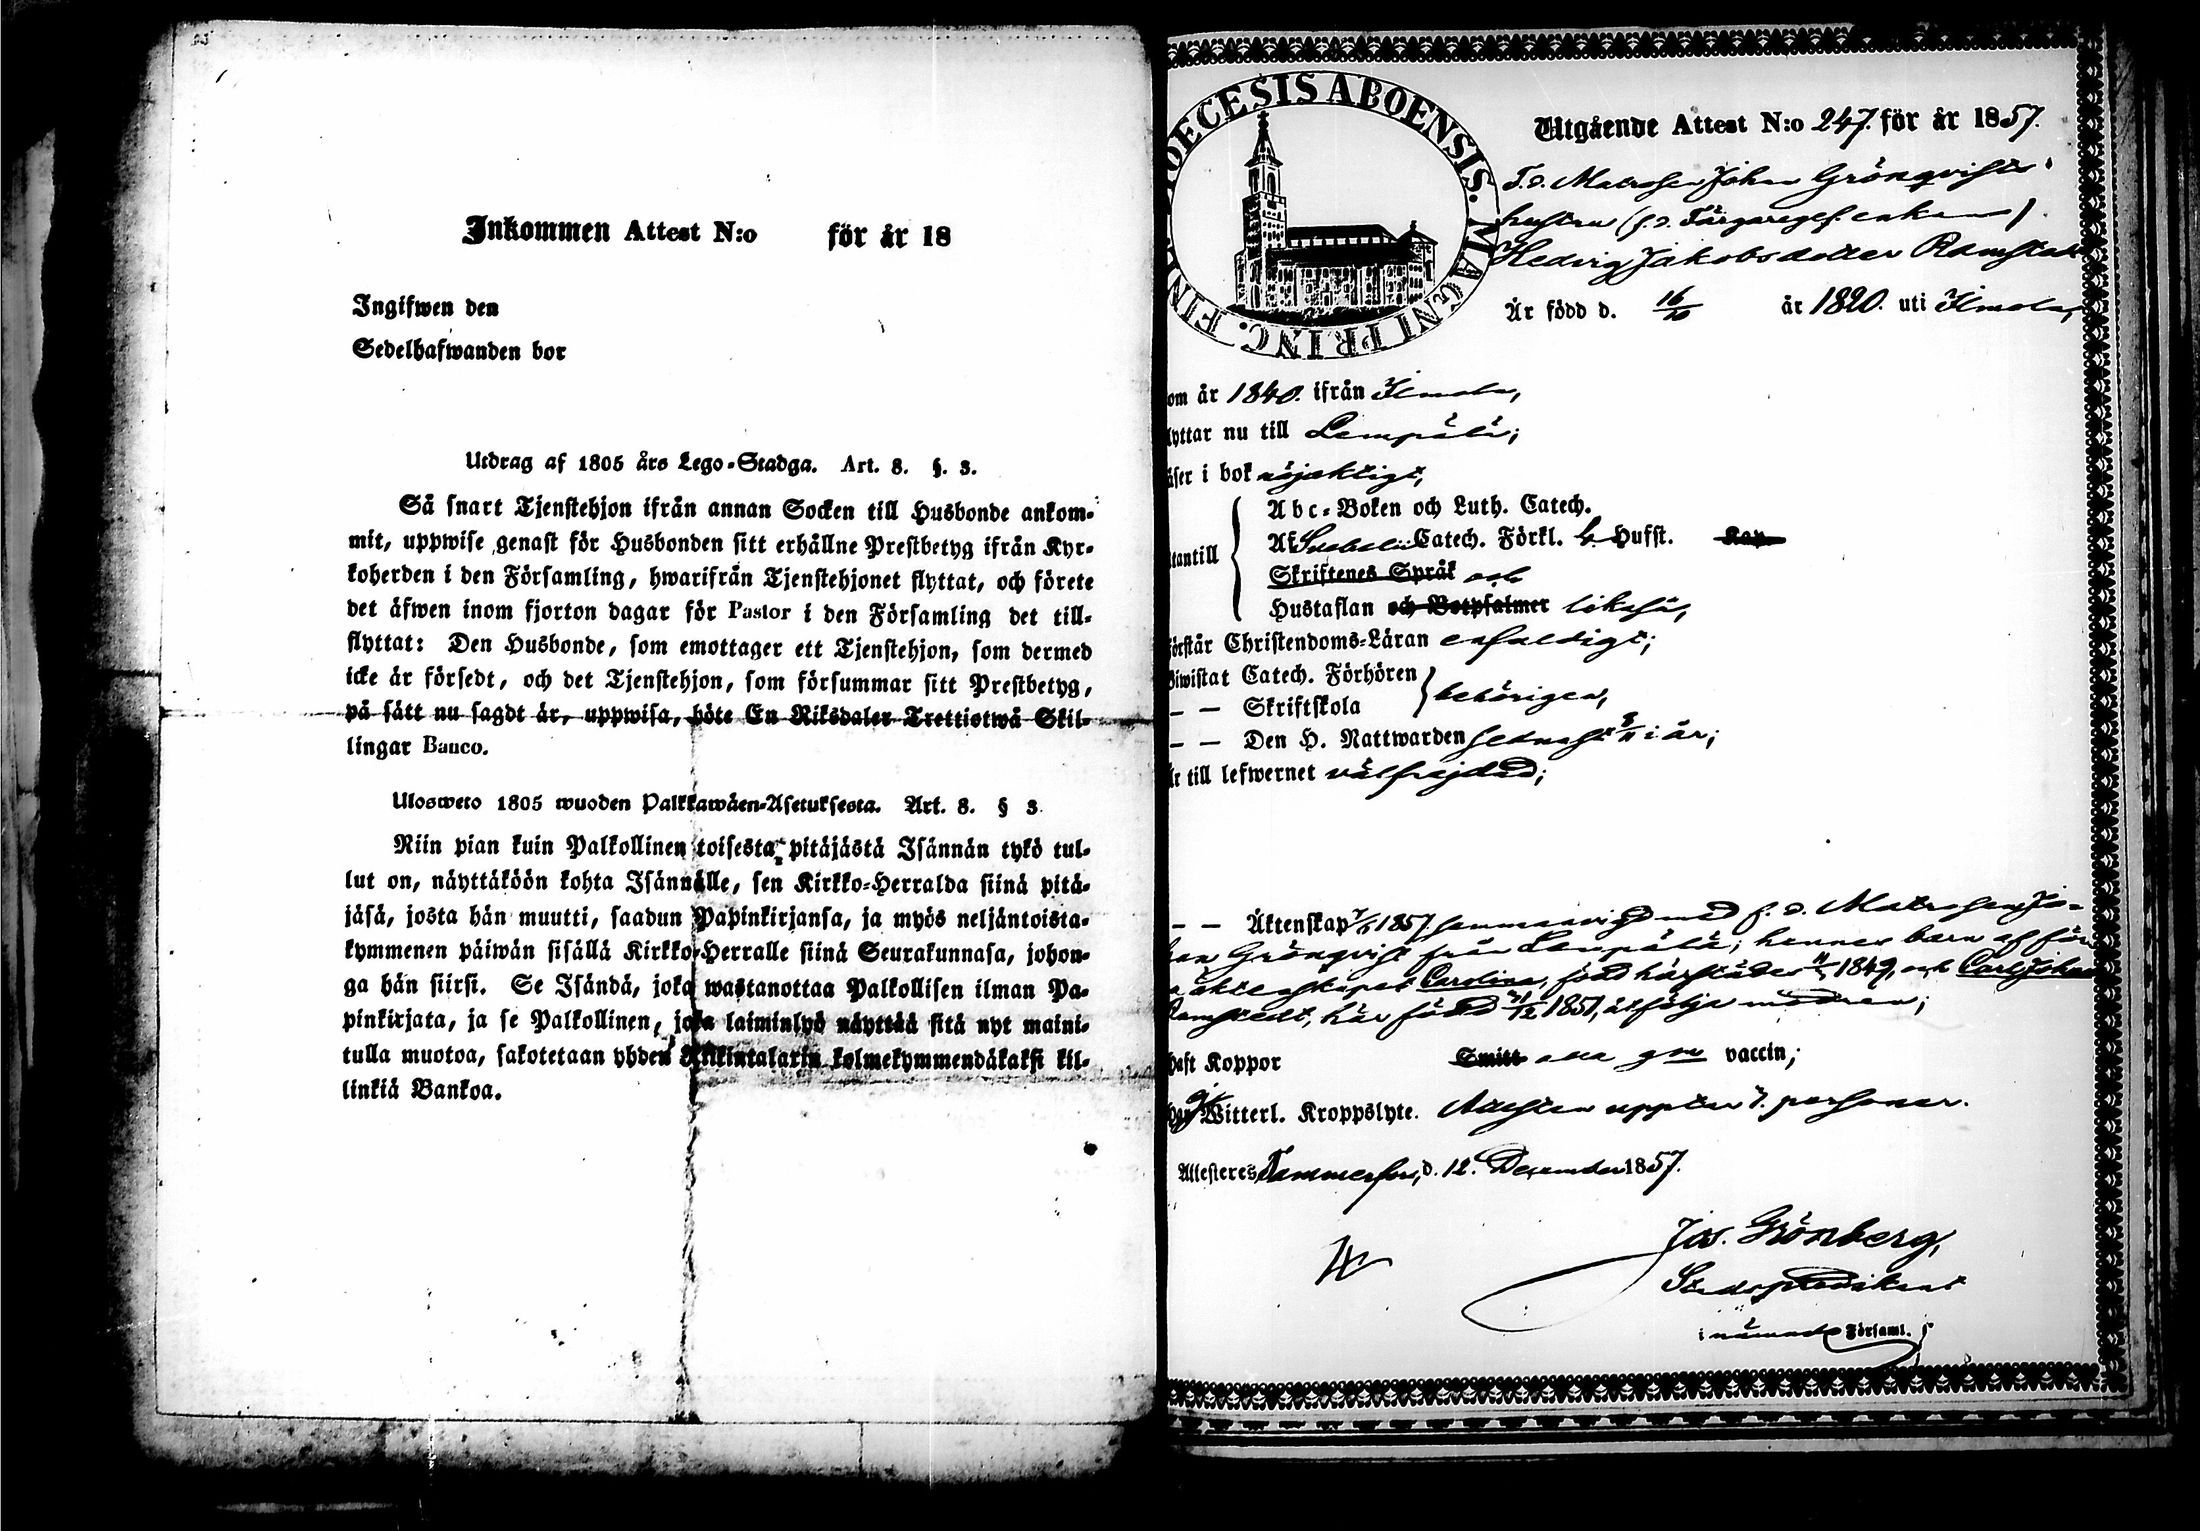 Inkommen Attest N:o för år 18
Ingifwen den
Sedelhafwanden bor
Utdrag af 1805 års Lego-Stadga. Art. 8. §. 3.
Så snart Tjenstehjon ifrån annan Socken till Husbonde ankom-
mit, uppwise genast för Husbonden sitt erhållne Prestbetyg ifrån Kyr-
koherden i den Församling, hwarifrån Tjenstehjonet flyttat, och förete
det äfwen inom fjorton dagar för Pastor i den Församling det till-
flyttat: Den Husbonde, som emottager ett Tjenstehjon, som dermed
icke är försedt, och det Tjenstehjon, som försummar sitt Prestbetyg,
på sätt nu sagdt är, uppwisa, böte En Riksdaler Trettiotwå Skil-
lingar Banco.
Ulosweto 1805 wuoden Palkkawäen-Asetuksesta. Art. 8. § 3
Niin pian kuin Palkollinen toisesta pitäjästä Isännän tykö tul-
lut on, näyttäköön kohta Isännälle, sen Kirkko-Herralda siinä pitä-
jäsä, josta hän muutti, saadun Papinkirjansa, ja myös neljäntoista-
kymmenen päiwän sisällä Kirkko-Herralle siinä Seurakunnasa, johon-
ga hän siirsi. Se Isändä, joka wastanottaa Palkollisen ilman Pa-
pinkirjata, ja se Palkollinen, joka laiminlyö näyttää sitä nyt maini-
tulla muotoa, sakotetaan yhden Riikintalarin kolmekymmendäkaksi kil-
linkiä Bankoa.
DIOECESIS ABOENSIS. MAGNI PRINC. FIN
Utgående Attest N:o 247. för år 1857.
F.d. Matrosen Johan Grönqvists
hustru (f.d. Färgaregesf. enkan)
Hedvig Jakobsdotter Ramstedt
Är född d. 16/10 år 1820. uti Ilmola,
om år 1840. ifrån Ilmola,
lyttar nu till Lempälä;
äser i bok nöjaktigt,
tantill
Abc-Boken och Luth. Catech.
Af Svebelii Catech. Förkl. Hufst. Kap.
Skriftenes Språk och
Hustaflan och Botpsalmer likaså,
örstår Christendoms-Läran enfaldigt;
Biwistat Catech. Förhören
— — Skriftskola behörigen,
— — Den H. Nattwarden sednast 8/11 i år;
Är till lefwernet välfrejdad;
— — Äktenskap 1857 sammanvigd med f. d. Matrosen Jo-
han Grönqvist från Lempälä; hennes barn af för
a äktenskapet Carolina, född härstädes 1849, och Carl Johan
Ramstedt, här född 21/12 1851, åtfölja modren;
haft Koppor Smitt alla gm vaccin;
Witterl. Kroppslyte. Attesten upptar 3. personer.
Attesteres Tammerfors, d. 12. December 1857.
Jos. Grönberg,
Stadspredikant
i nämnde Församl.